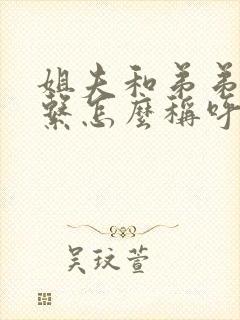 姐夫和弟弟
繫怎麼稱呼
吴玟萱